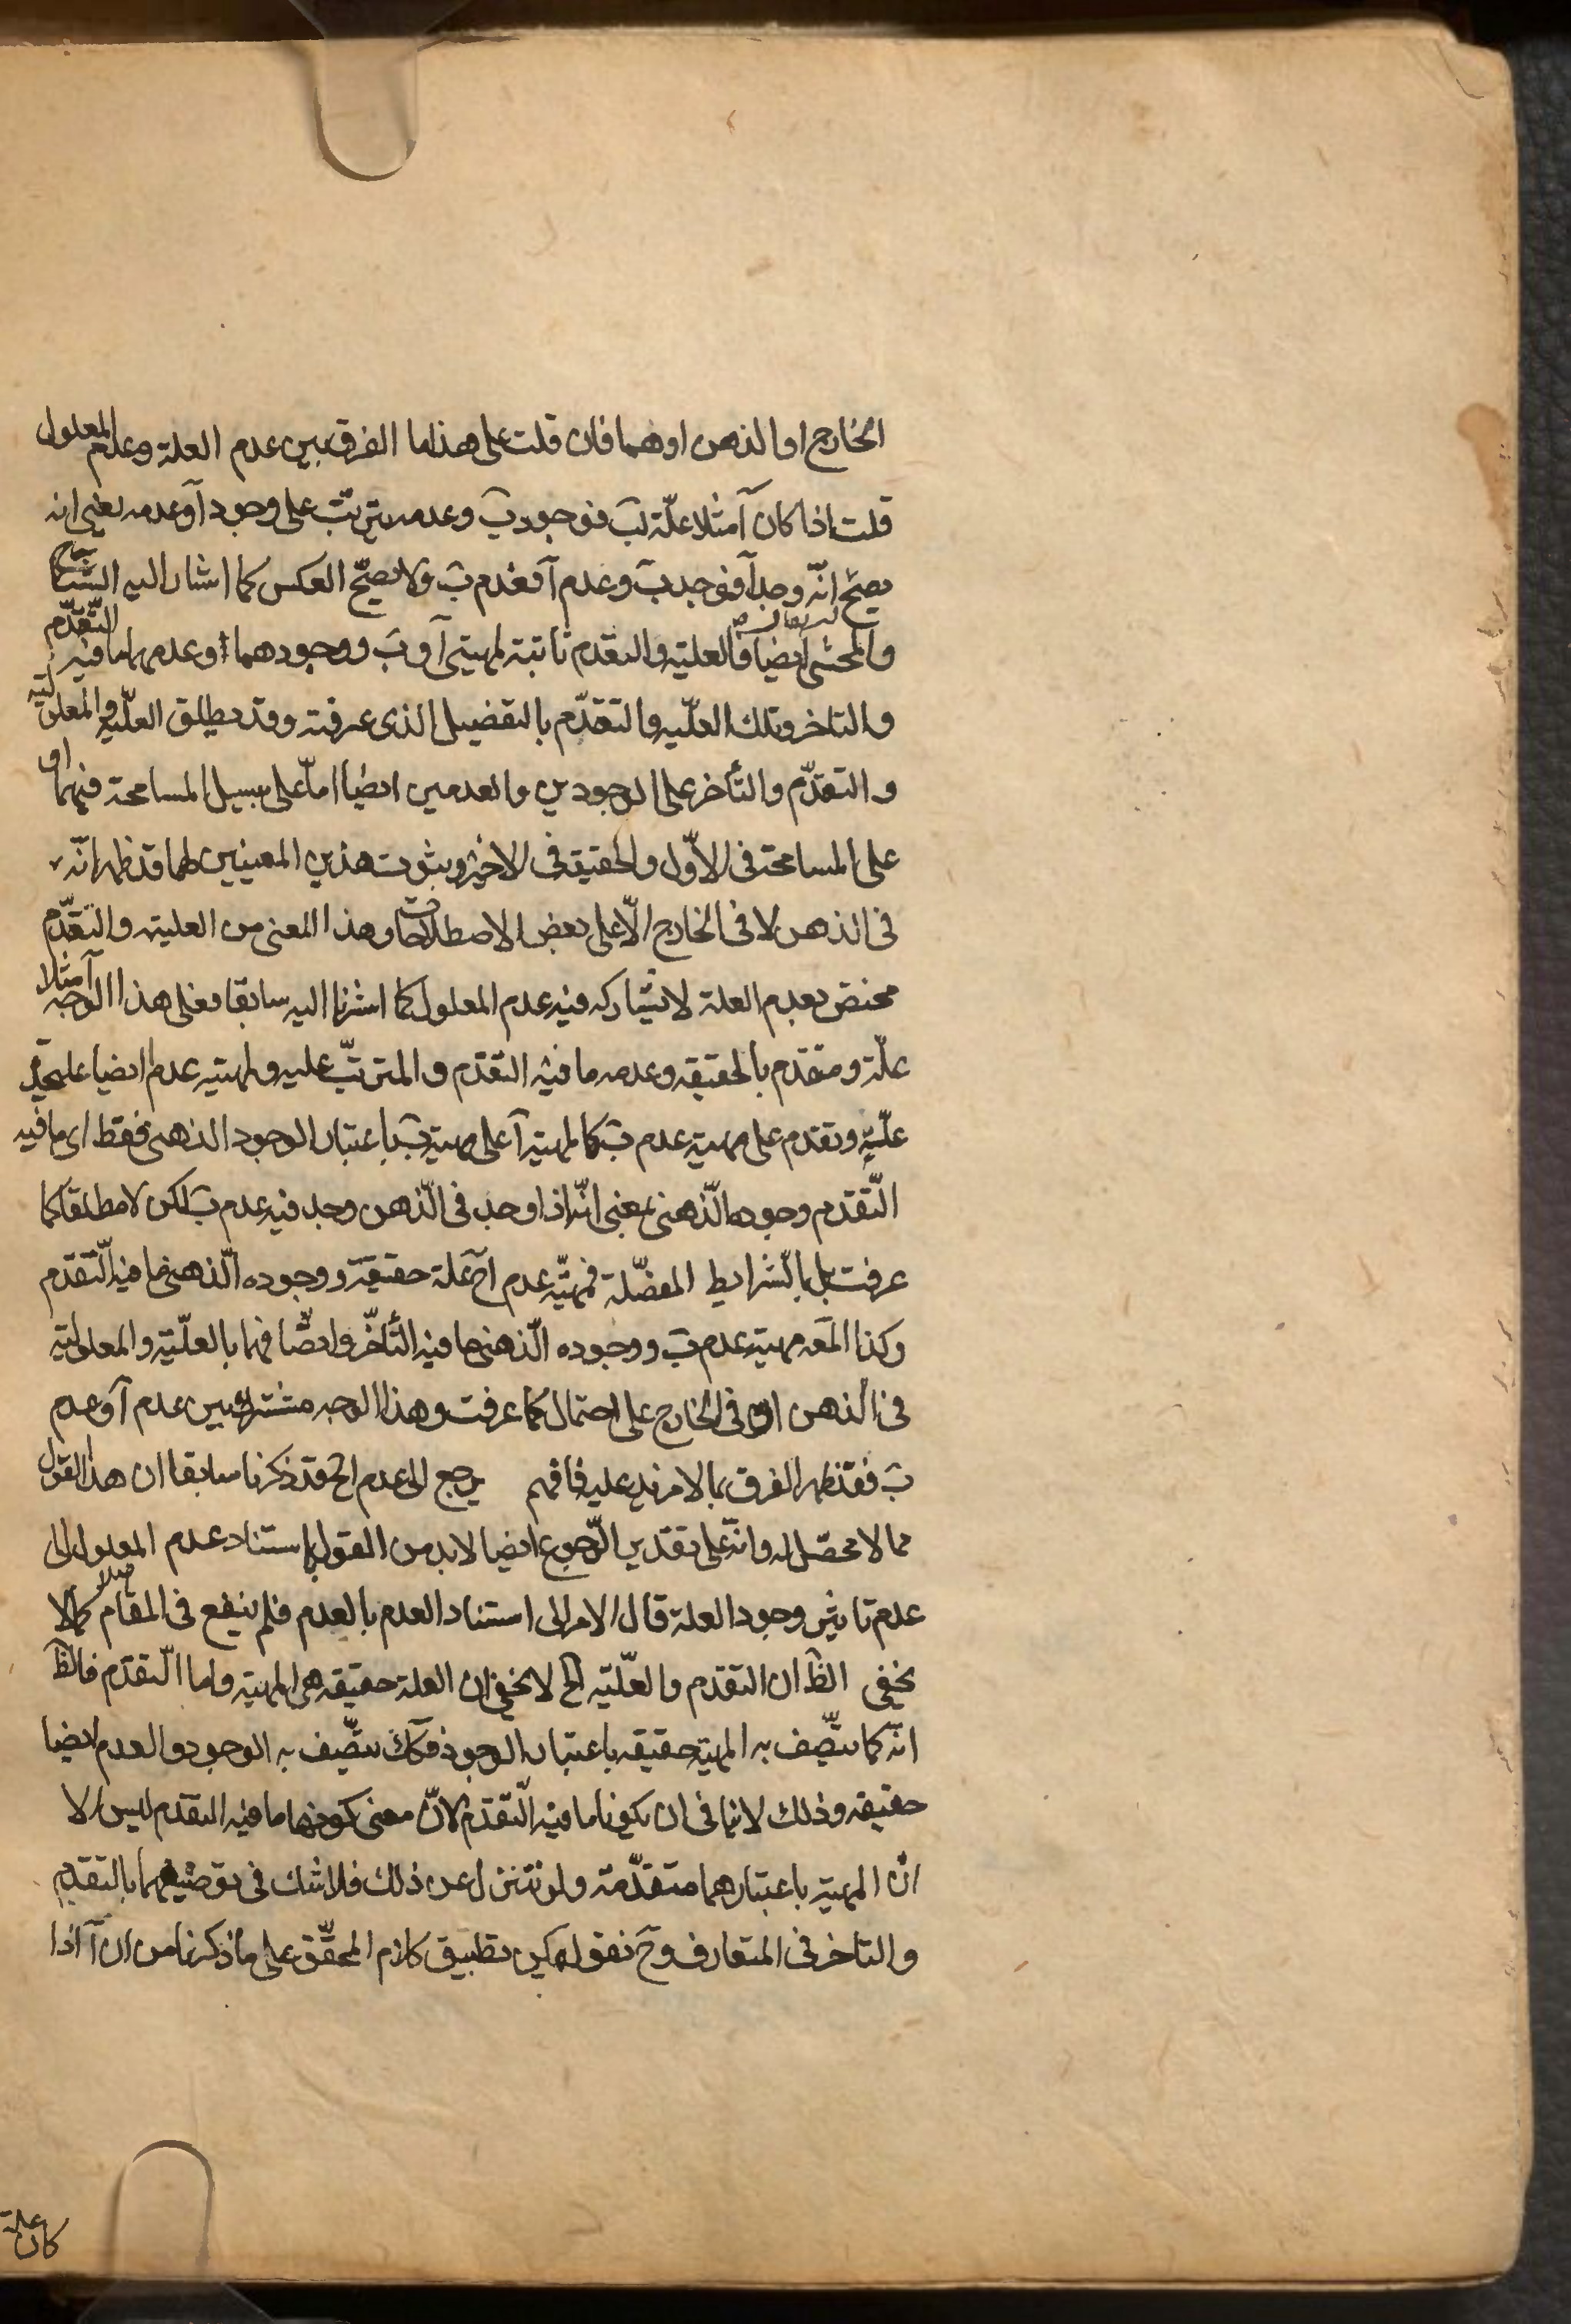 الخارج او الذهن او هما فان قلت على هذا ما الفرق بين عدم العلة وعدم المعلول
قلت اذا كان آ مثلا علّة لبَ فوجود بَ وعدمه يترتّب على وجود آ وعدمه يعنى انه
يصحّ انّه وجد آ فوجد بَ وعدم آ فعدم بَ ولا يصحّ العكس كما اشار اليه الشارح
والمحشى ايضا فالعليّة والتقدم ثابتة لمهيتى آ و بَ ووجودهما وعدمهما ما فيه التّقدّم
والتاخر وتلك العلّيه والتقدّم بالتفضيل الذى عرفته وقد يطلق العلّيه والمعلوليّه
والتقدّم والتأخر على الوجودين والعدمين ايضا امّا على سبيل المسامحة فيهما او
على المسامحة فى الاوّل والحقيقة فى الاخير وثبوت هذين المعنيين لهما قد ظهر انّه
فى الذهن لا فى الخارج الّا على بعض الاصطلاحات وهذا المعنى من العلية والتقدّم
مختص بعدم العلة لا يشاركه فيه عدم المعلول كما اشرنا اليه سابقا فعلى هذا الوجه آ مثلا
علّة ومتقدم بالحقيقه وعدمه ما فيه التقدّم والمترتّب عليه ولمهيته عدم آ ايضا
علّيّة وتقدم على مهية عدم بَ كما لمهية آ على مهية بَ باعتبار الوجود الذهنى فقط اى ما فيه
التّقدم وجوده الذهنى بمعنى انّه اذا وجد فى الذّهن وجد فيه عدم بَ لكن لا مطلقا كما
عرفت بل بالشّرايط المفصّلة فمهيّة عدم آ علة حقيقة ووجوده الّذهنى ما فيه الّتقدّم
وكذا المعه مهية عدم بَ ووجوده الّذهنى ما فيه التأخّر وايضا فهما بالعلّيّة والمعلوليّه
فى الذهن او فى الخارج على احتمال كما عرفت وهذا الوجه مشترك بين عدم آ وعدم
بَ فقد ظهر الفرق بما لا مزيد عليه فافهم يرجع الى عدم الخ قد ذكرنا سابقا ان هذا القول
مما لا محصّل له وانّه على تقدير الرّجوع ايضا لا بد من القول باستناد عدم المعلول الى
عدم تاثير وجود العلة قال الامر الى استناد العدم بالعدم فلم ينفع فى المقام اصلا كما لا
يخفى الظَ ان التقدم والعلّيّه الخ لا يخفى ان العلة حقيقه هى المهية واما الّتقدّم فالظَ
انّه كما يتّصف به المهية حقيقه باعتبار الوجود فكَك يتّصف به الوجود والعدم ايضا
حقيقه وذلك لا ينافى ان يكونا ما فيه الّتقدّم لانّ معنى كونهما ما فيه التقدم ليس الا
انّ المهية باعتبارهما متقدّمة ولو تنزّل عن ذلك فلا شك فى توصيفهما بالتقدم
والتاخر فى المتعارف وحَ نقول يمكن تطبيق كلام المحقّق على ما ذكرنا من ان آ اذا
كان علة